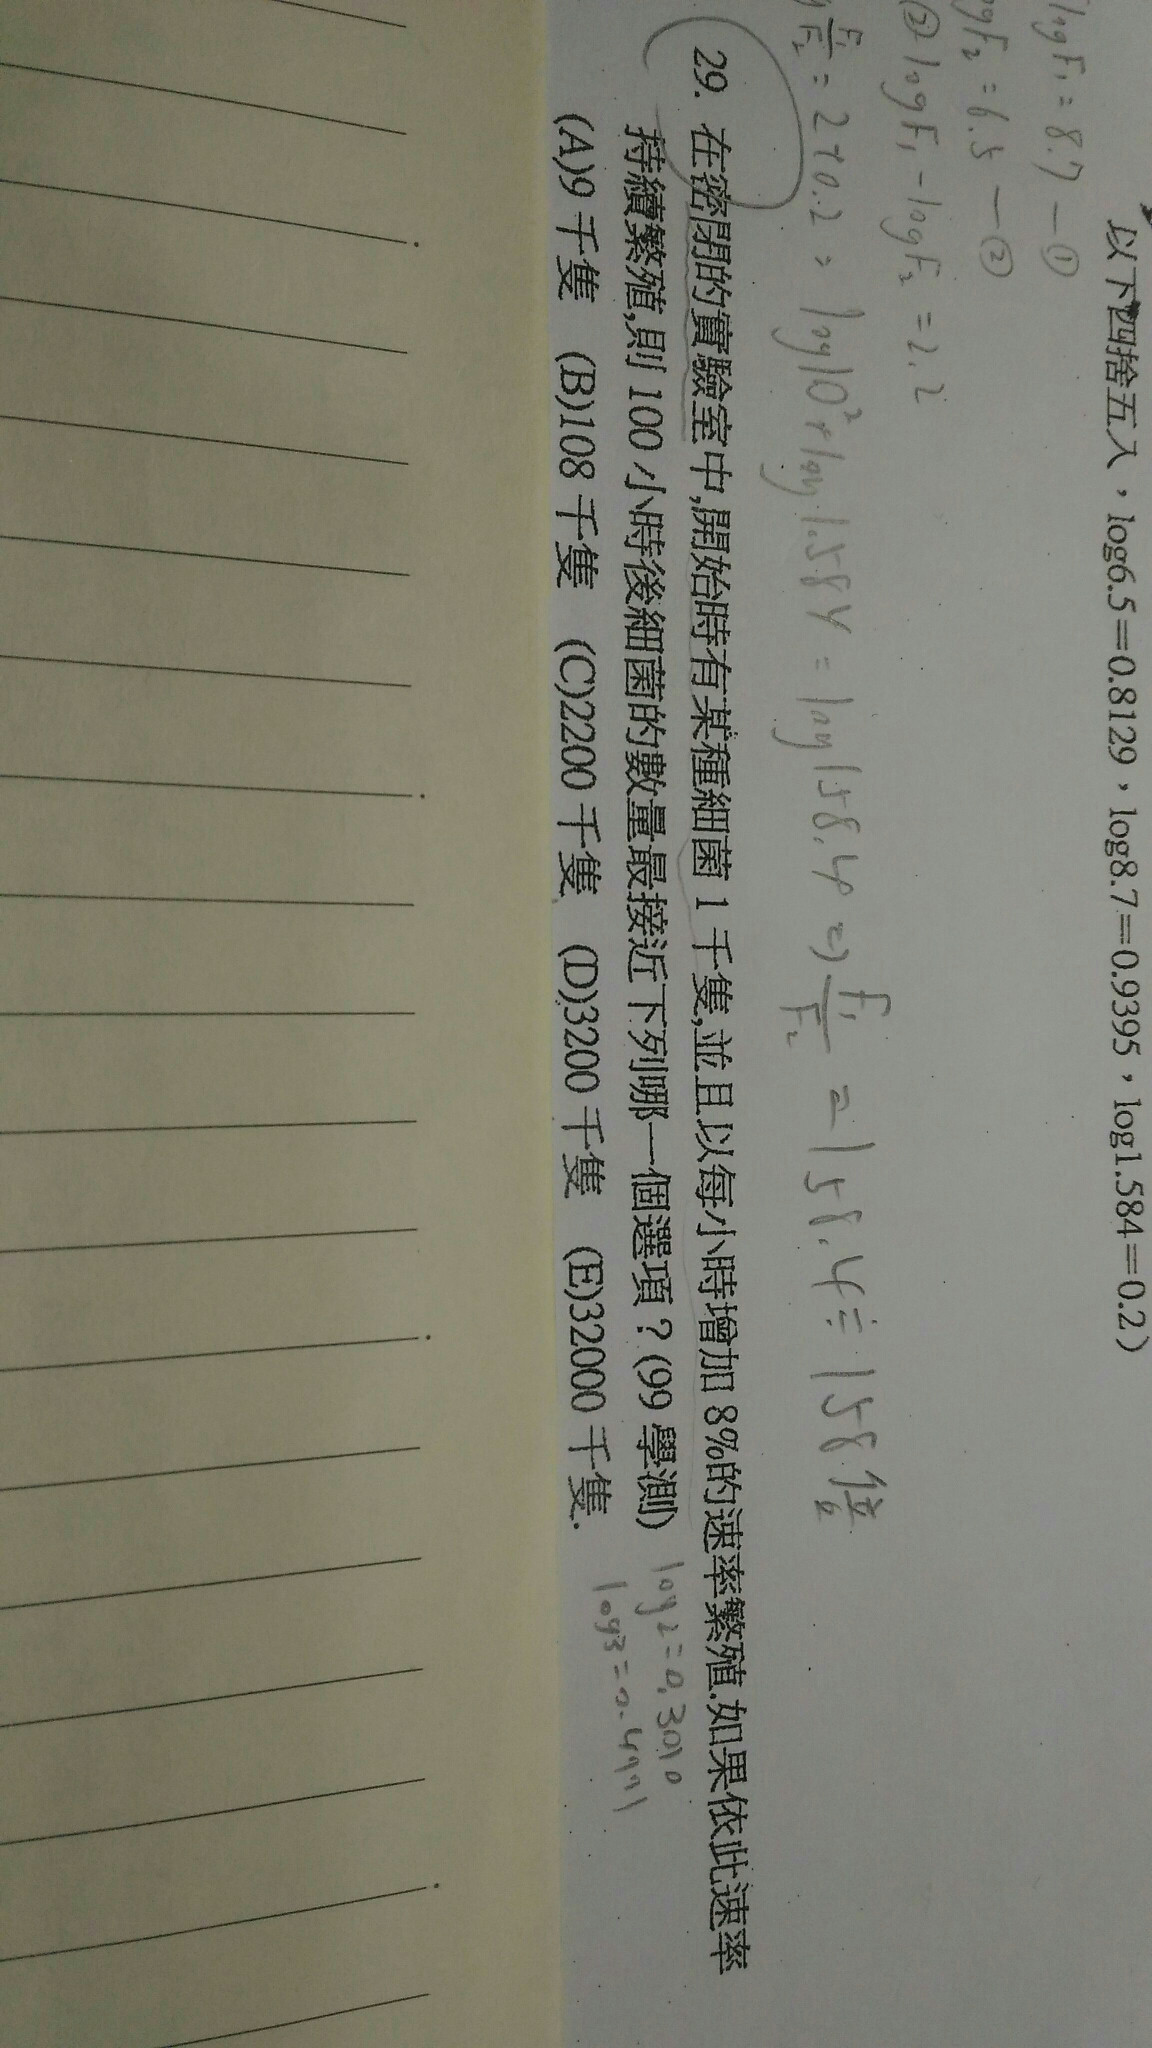 以下四捨五入，log6.5＝0.8129，log8.7＝0.9395，log1.584＝0.2）
logF₁=8.7 —①
gF₂=6.5 —②
② logF₁-logF₂=2.2
F₁/F₂=2+0.2=log10²+log1.584=log158.4⇒F₁/F₂=158.4≒158倍
29. 在密閉的實驗室中,開始時有某種細菌 1 千隻,並且以每小時增加 8%的速率繁殖.如果依此速率
持續繁殖,則 100 小時後細菌的數量最接近下列哪一個選項？(99 學測) log2=0.3010
(A)9 千隻 (B)108 千隻 (C)2200 千隻 (D)3200 千隻 (E)32000 千隻. log3=0.4771